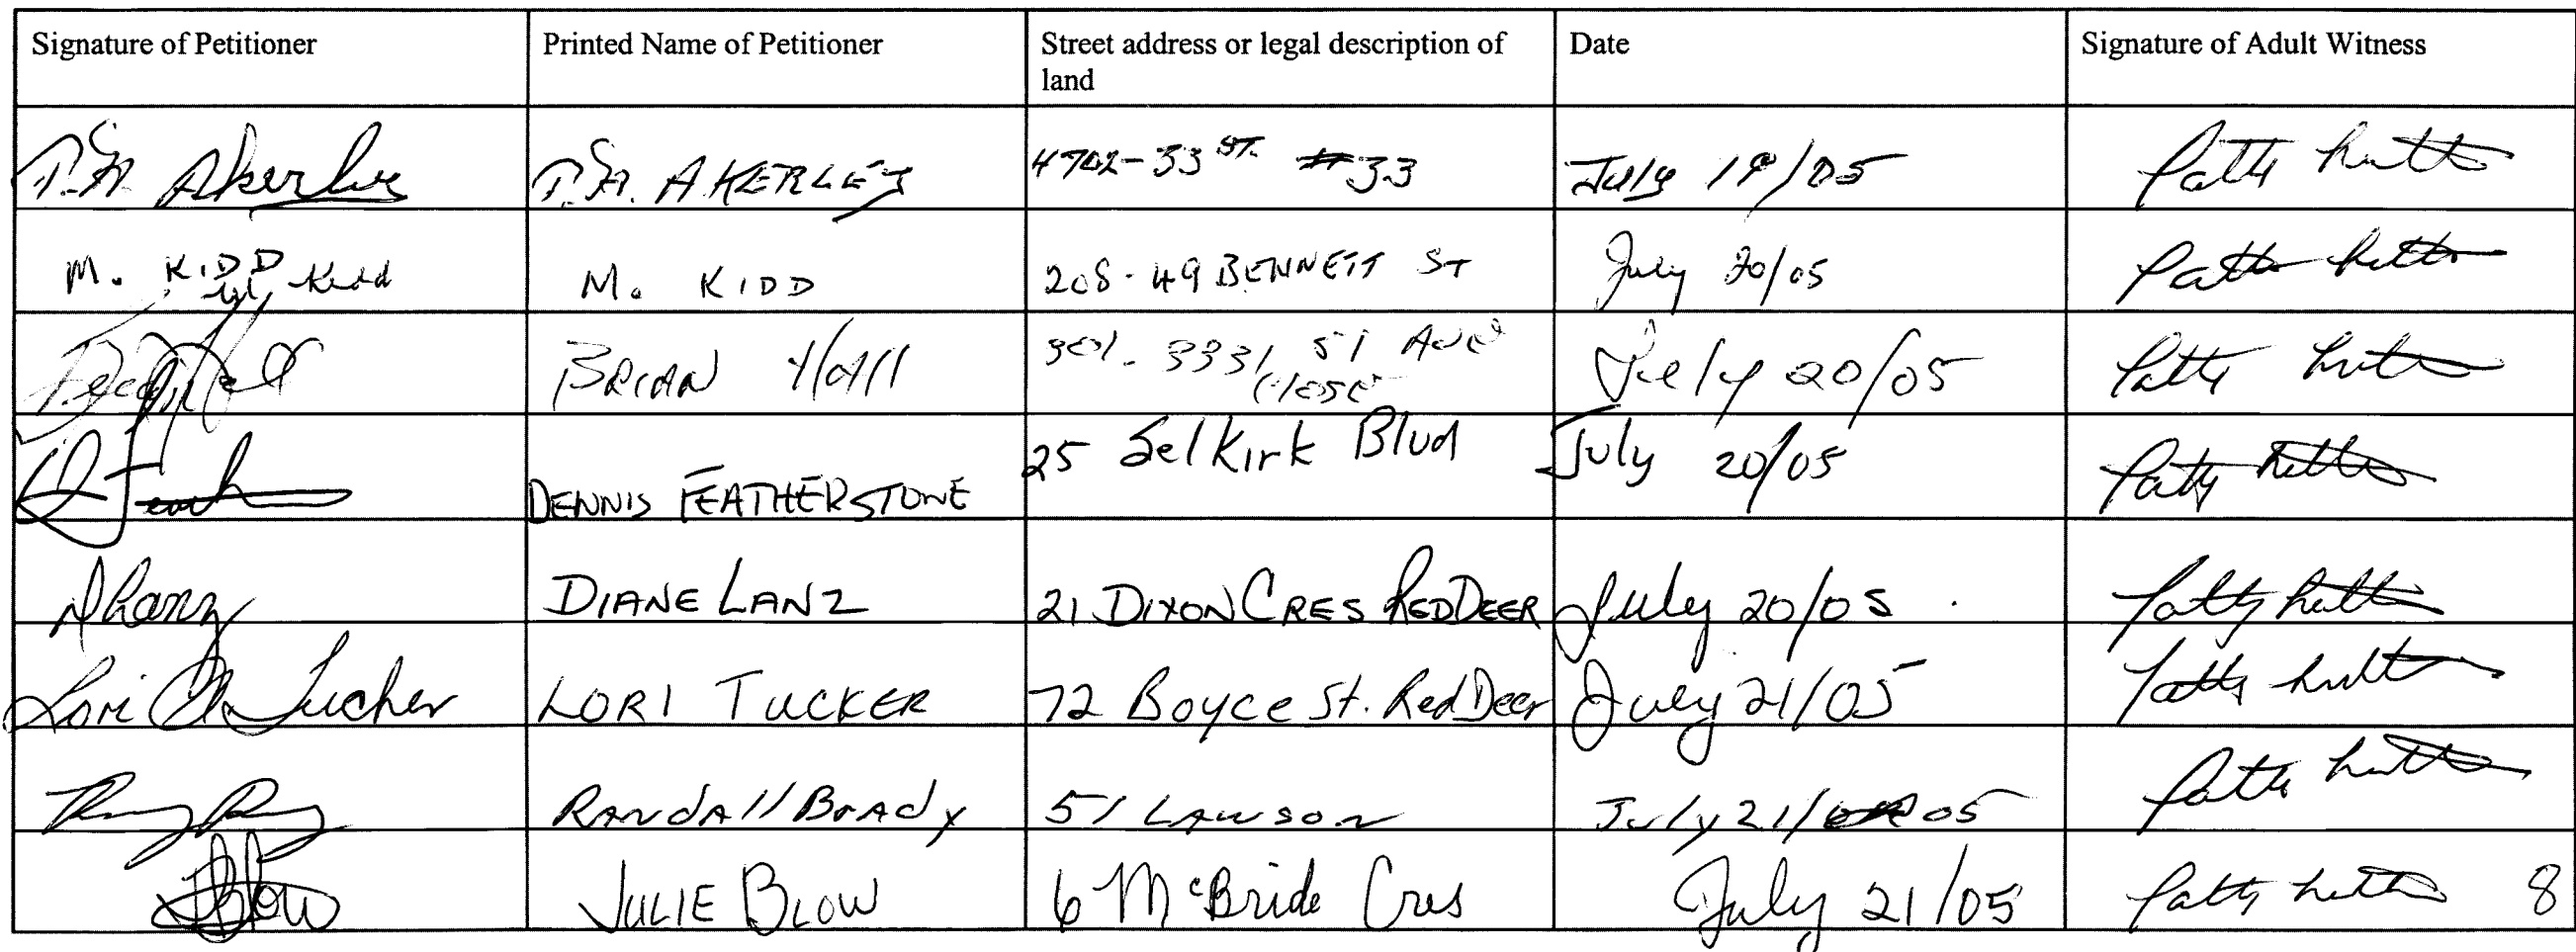 Signature of Petitioner Printed Name of Petitioner Street address or legal description of land Date Signature of Adult Witness
AKERLEY 4702-33 ST. #33 July 19/05 Patty
M. KIDD Kidd M. KIDD 208-49 BENNETT ST July 20/05 Patty
BRIAN Hall 301-3331 51 Ave Close July 20/05 Patty
DENNIS FEATHERSTONE 25 Selkirk Blvd July 20/05 Patty
DLanz DIANE LANZ 21 DIXON CRES RED DEER July 20/05 Patty
Lori Tucker LORI TUCKER 72 Boyce St. Red Deer July 21/05 Patty
RANdAll BrAdy 51 LAWSON July 21/05 Patty
JBlow JULIE BLOW 6 McBride Cres July 21/05 Patty 8